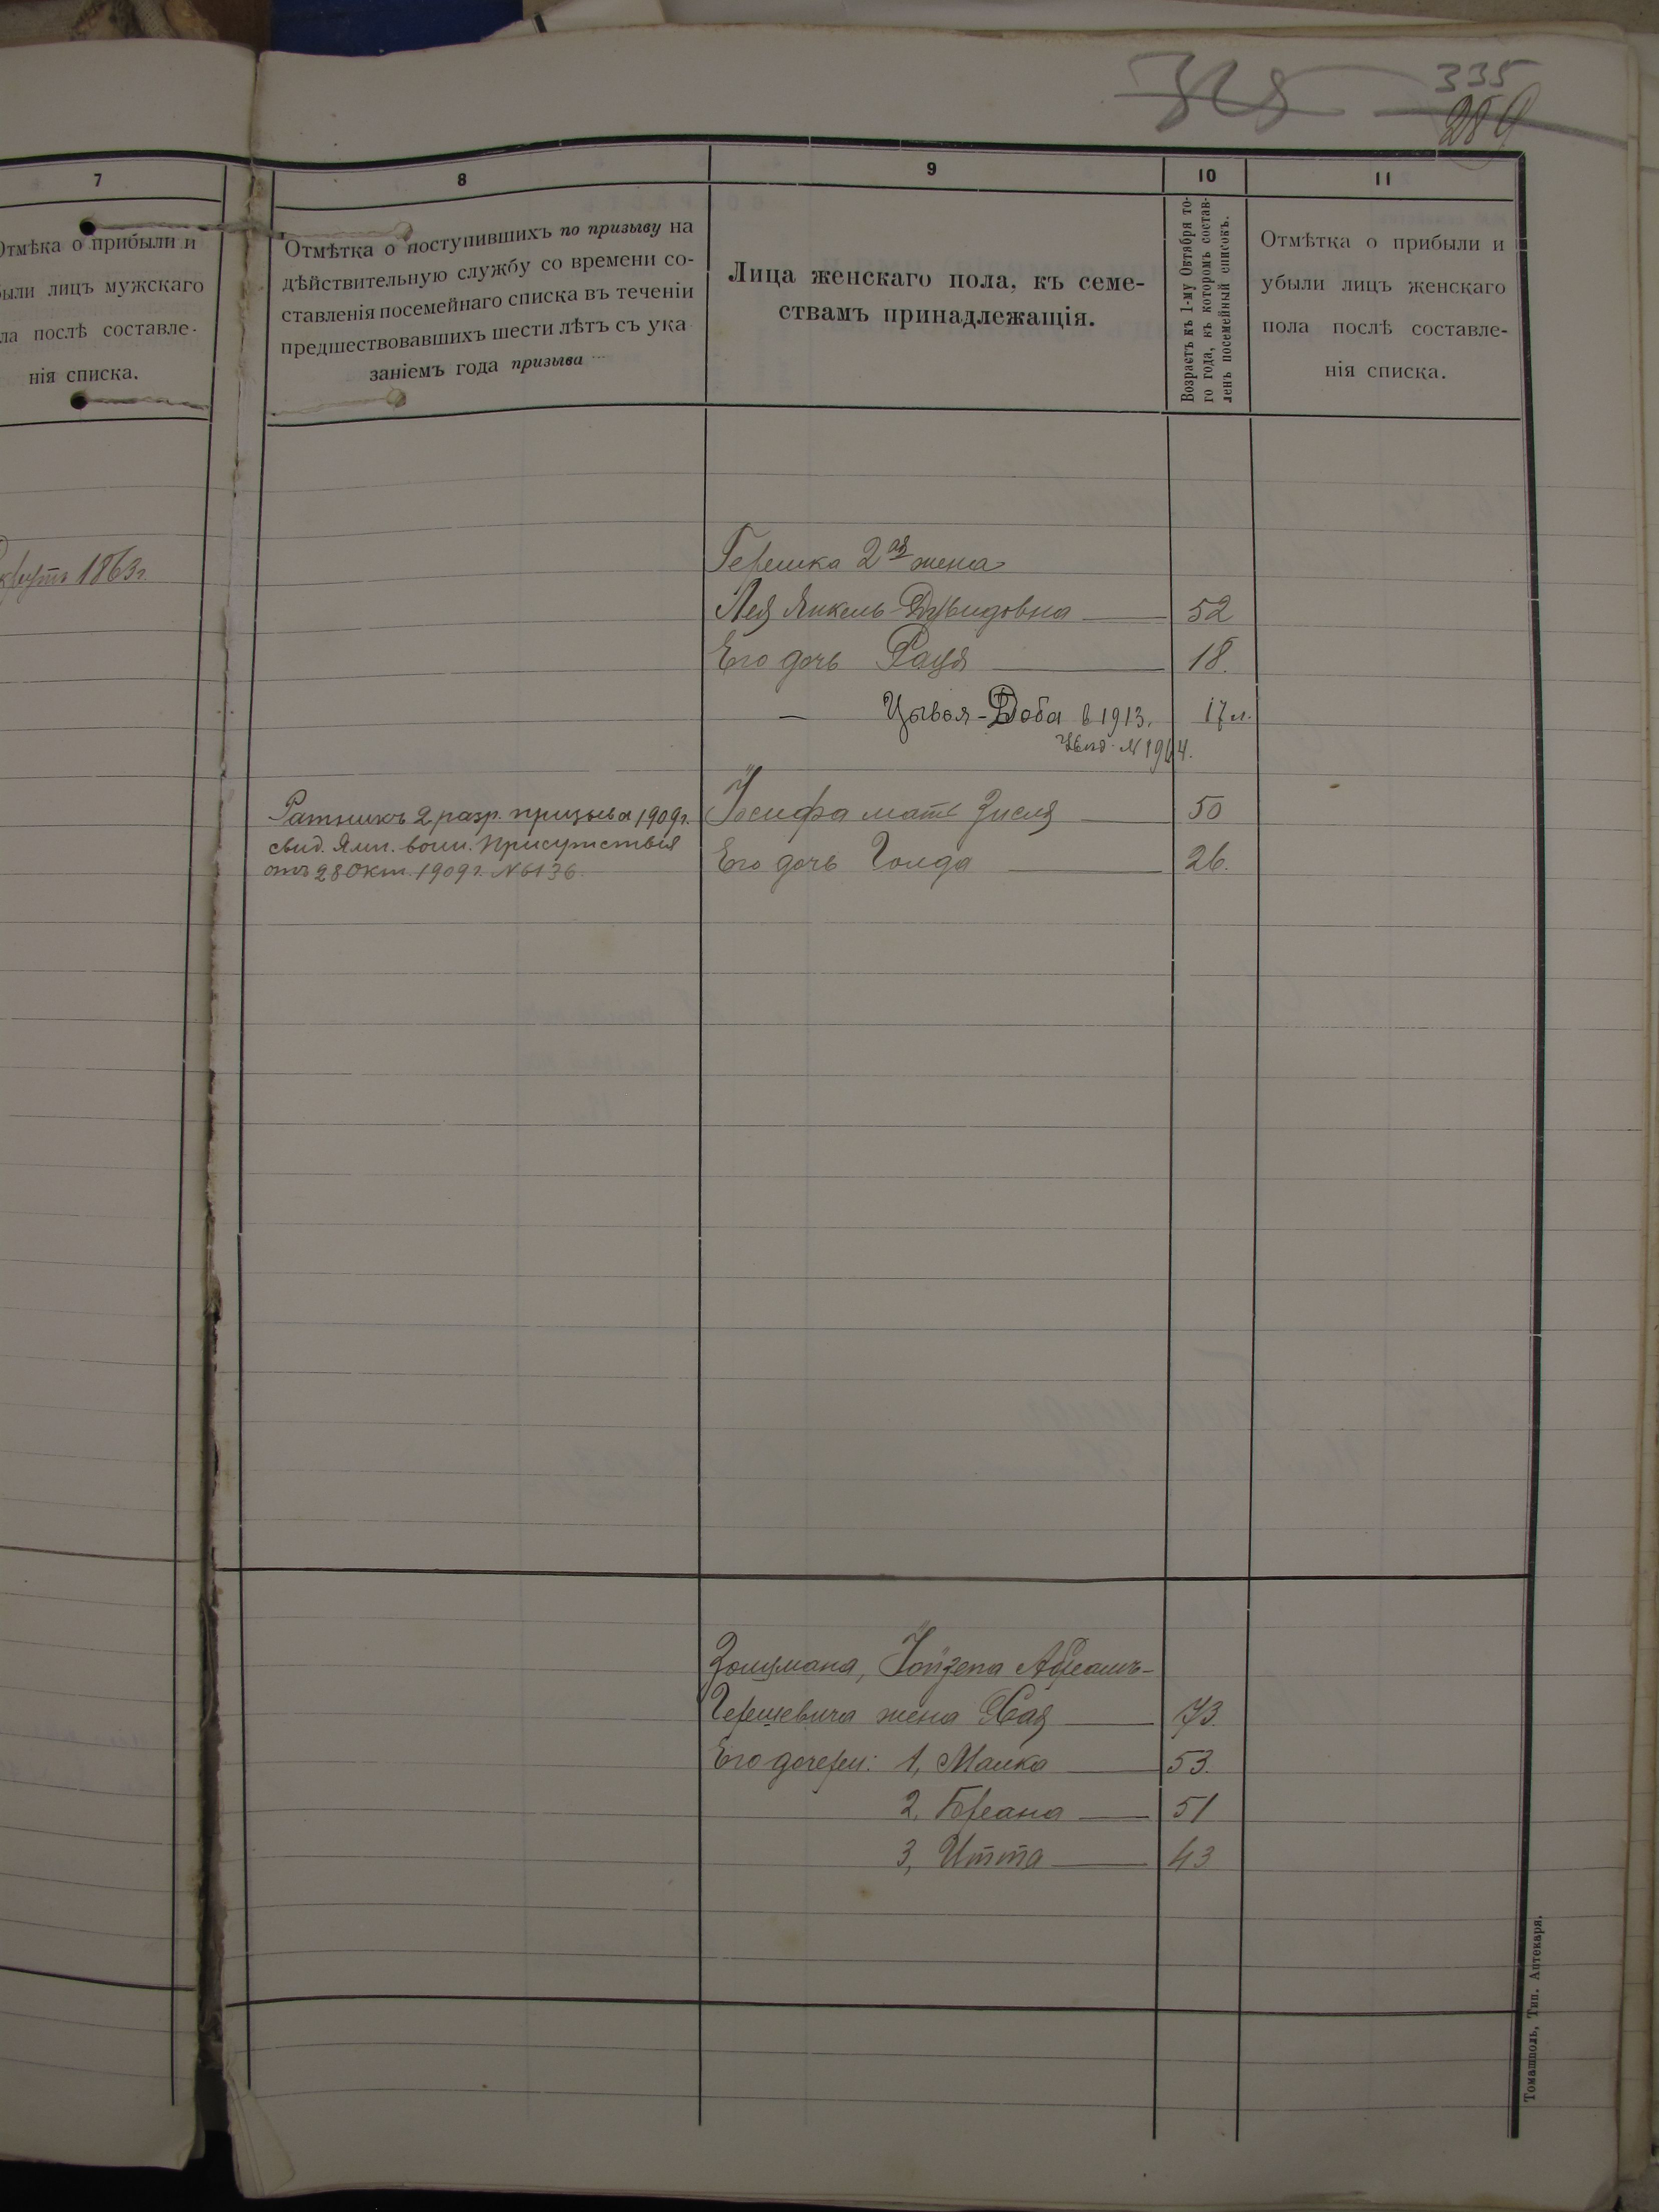 335
289
7
Отмѣка о прибыли и
были лицъ мужскаго
ла послѣ составле-
нія списка.
1863г.
8
Отмѣтка о поступившихъ по призыву на
дѣйствительную службу со времени со-
ставленія посемейнаго списка въ теченіи
предшествовавшихъ шести лѣтъ съ ука
заніемъ года призыва
9
Лица женскаго пола, къ семе-
ствамъ принадлежащія.
10
Возрастъ къ 1-му Октября то-
го года, къ которомъ состав-
ленъ посемейный списокъ.
11
Отмѣтка о прибыли и
убыли лицъ женскаго
пола послѣ составле-
нія списка.
Гершка 2ая жена
Лея Янкель-Дувидовна 52
Его дочь Рахля 18.
— Цывья-Доба в 1913. 17 л.
№ 1964.
Ратникъ 2 разр. призыва 1909г.
свид. Ямп. воин. Присутствія
отъ 28 Окт. 1909г. № 6136.
Іосифа мать Зисля 50
Его дочь Голда 26.
Зольцмана, Іойзепа Абрамъ-
Гершевича жена Хая 73.
Его дочери: 1, Малка 53.
2, Бреана 51
3, Итта 43
Томашполь, Тип. Аптекаря.